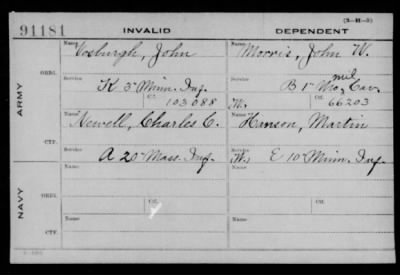 (3-M-3)
91181 INVALID DEPENDENT
Name Vosburgh, John Name Morris, John W.
ARMY
ORIG.
Service K 3" Minn. Inf. Service B 1" Mo. Mil Cav.
Ctf. 103088 W. Ctf. 66203
CTF.
Name Newell, Charles C. Name Hanson, Martin
Service A 20" Mass. Inf. Service W. E 10" Minn. Inf.
NAVY
ORIG.
Name Name
Service Ctf. Service Ctf.
CTF.
Name Name
Service Service